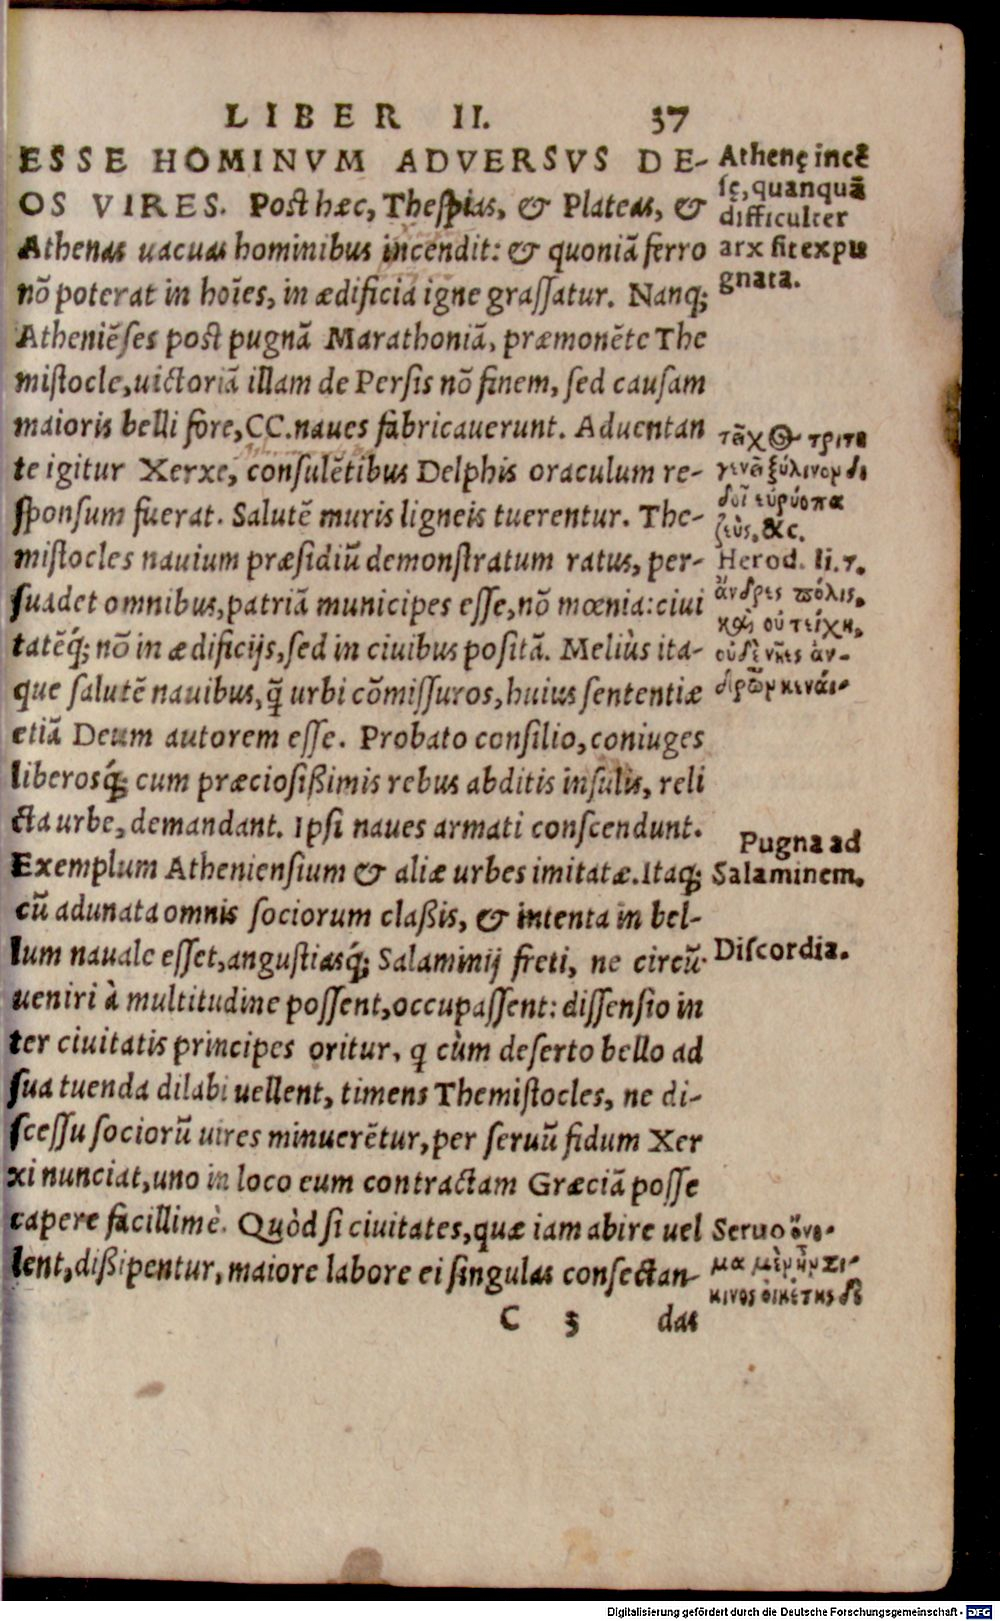 LIBER II. 37
ESSE HOMINVM ADVERSVS DE-
OS VIRES. Post hæc, Thespias, & Plateas, &
Athenas uacuas hominibus incendit: & quoniã ferro
nõ poterat in hoĩes, in ædificia igne grassatur. Nanq;
Atheniẽses post pugnã Marathoniã, præmonẽte The
mistocle, uictoriã illam de Persis nõ finem, sed causam
maioris belli fore, CC. naues fabricauerunt. Aduentan
te igitur Xerxe, consulẽtibus Delphis oraculum re-
sponsum fuerat. Salutẽ muris ligneis tuerentur. The-
mistocles nauium præsidiũ demonstratum ratus, per-
suadet omnibus, patriã municipes esse, nõ mœnia: ciui
tatẽq́; nõ in ædificijs, sed in ciuibus positã. Meliùs ita-
que salutẽ nauibus, q̃ urbi cõmissuros, huius sententiæ
etiã Deum autorem esse. Probato consilio, coniuges
liberosq́; cum præciosißimis rebus abditis insulis, reli
cta urbe, demandant. Ipsi naues armati conscendunt.
Exemplum Atheniensium & aliæ urbes imitatæ. Itaq;
cũ adunata omnis sociorum claßis, & intenta in bel-
lum nauale esset, angustiasq́; Salaminij freti, ne circũ
ueniri à multitudine possent, occupassent: dissensio in
ter ciuitatis principes oritur, q cùm deserto bello ad
sua tuenda dilabi uellent, timens Themistocles, ne di-
scessu sociorũ uires minuerẽtur, per seruũ fidum Xer
xi nunciat, uno in loco eum contractam Græciã posse
capere facillimè. Quòd si ciuitates, quæ iam abire uel
lent, dißipentur, maiore labore ei singulas consectan-
C 3 das
Athenę incẽ
sę, quanquã
difficulter
arx sit expu
gnata.
τριτο
ξύλινον δι
δοῖ εὐρύοπα
ζεὺς, &c.
Herod. li. 7.
ἄνδρες πόλις,
καὶ οὐ τείχη,
οὐδὲ νῆες ἀν-
δρῶν κεναί.
Pugna ad
Salaminem.
Discordia.
Seruo ὄνο-
μα μὲν ἦν σι-
κινος οἰκέτης δὲ
Digitalisierung gefördert durch die Deutsche Forschungsgemeinschaft - DFG